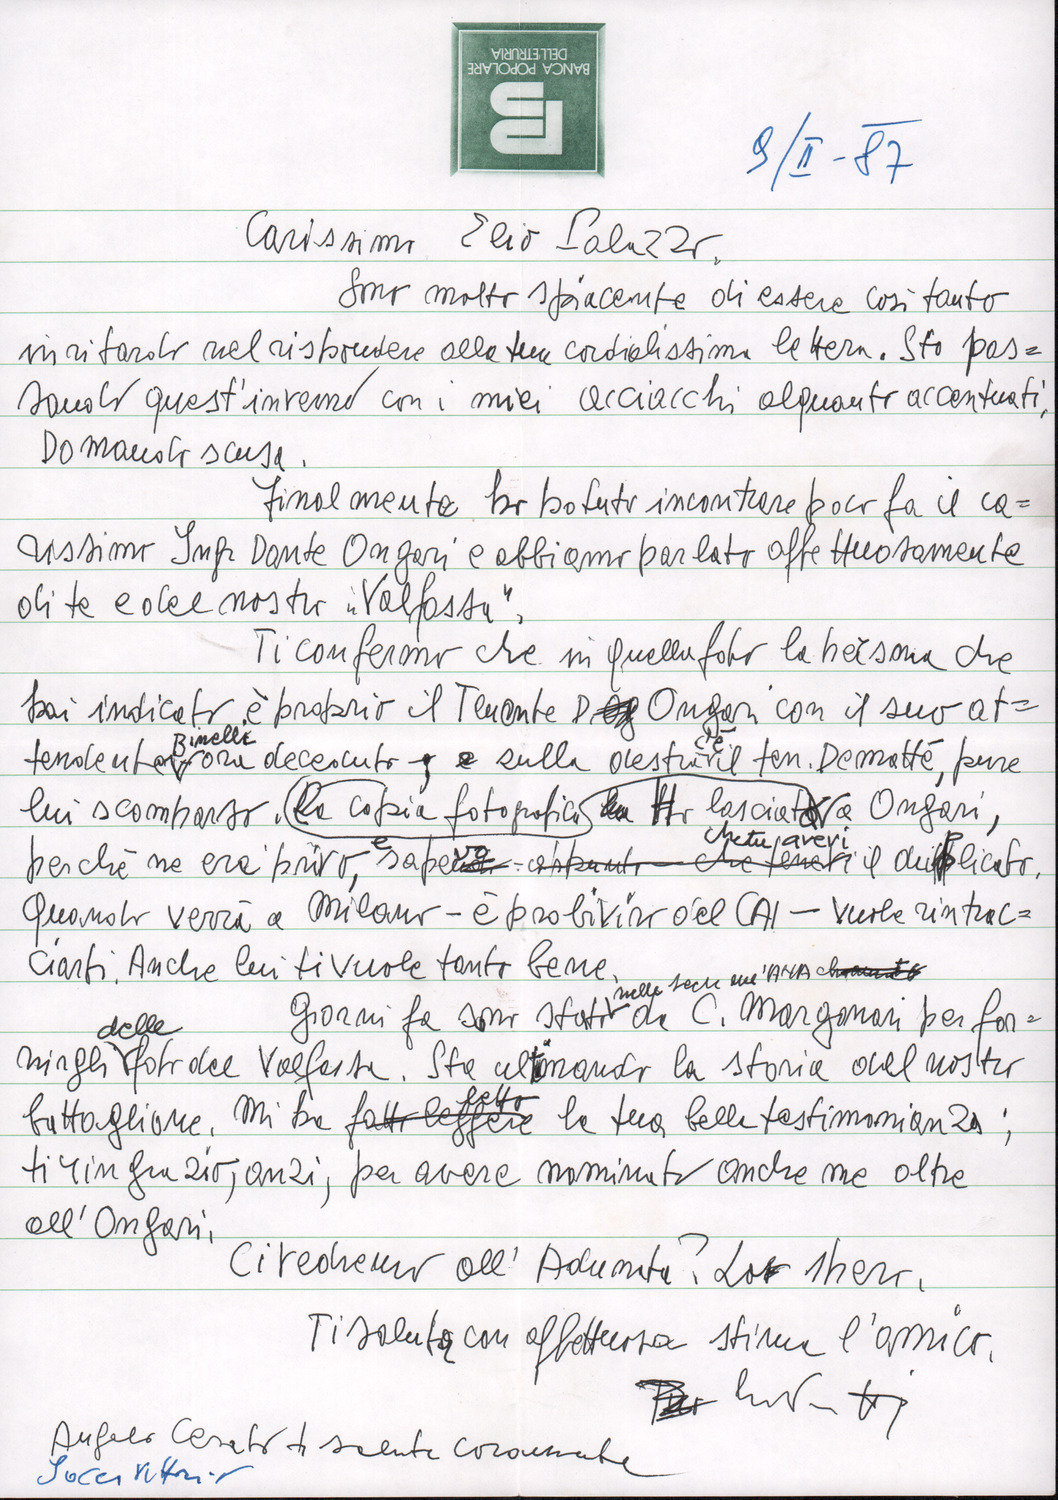 BANCA POPOLARE
DELL'ETRURIA
9/II-87
Carissimo Elio Palazzo,
Sono molto spiacente di essere così tanto
in ritardo nel rispondere alla tua cordialissima lettera. Sto pas=
sando quest'inverno con i miei acciacchi alquanto accentuati,
Domando scusa.
Finalmente ho potuto incontrare poco fa il ca=
rissimo Ing. Dante Ongari e abbiamo parlato affettuosamente
di te e del nostro "Valfassa",
Ti confermo che in quella foto la persona che
hai indicato è proprio il Tenente D. Ongari con il suo at=
tendente Binelli ora deceduto, e sulla destra c'è il ten. Dematté, pure
lui scomparso. La copia fotografica ho lasciata a Ongari,
perché ne era privo, e sapeva appunto che tenevi che tu averi il duplicato.
Quando verrà a Milano - è probiviro del CAI - vuole rintrac=
ciarti. Anche lui ti vuole tanto bene.
Giorni fa sono stato nella sede dell'ANA da C. Margonari per for=
nirgli delle foto del Valfassa. Sta ultimando la storia del nostro
battaglione. Mi ha fatto leggere letto la tua bella testimonianza;
ti ringrazio, anzi, per avere nominato anche me oltre
all'Ongari.
Ci vedremo all'Adunata? Lo spero.
Ti saluta con affettuosa stima l'amico.
Angelo Cerato ti saluta caramente